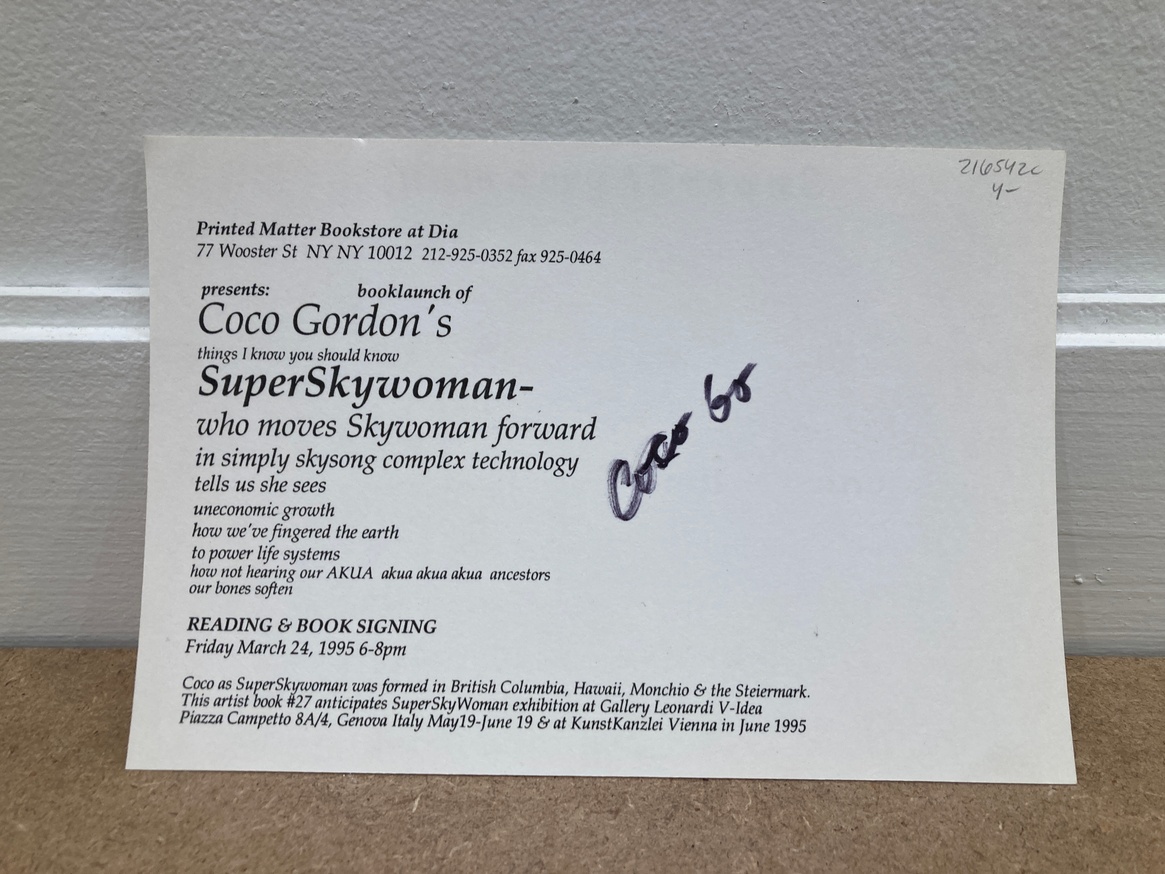 216542c
4-
Printed Matter Bookstore at Dia
77 Wooster St NY NY 10012 212-925-0352 fax 925-0464
presents: booklaunch of
Coco Gordon's
things I know you should know
SuperSkywoman-
who moves Skywoman forward
in simply skysong complex technology
tells us she sees
uneconomic growth
how we've fingered the earth
to power life systems
how not hearing our AKUA akua akua akua ancestors
our bones soften
Coco Go
READING & BOOK SIGNING
Friday March 24, 1995 6-8pm
Coco as SuperSkywoman was formed in British Columbia, Hawaii, Monchio & the Steiermark.
This artist book #27 anticipates SuperSkyWoman exhibition at Gallery Leonardi V-Idea
Piazza Campetto 8A/4, Genova Italy May19-June 19 & at KunstKanzlei Vienna in June 1995